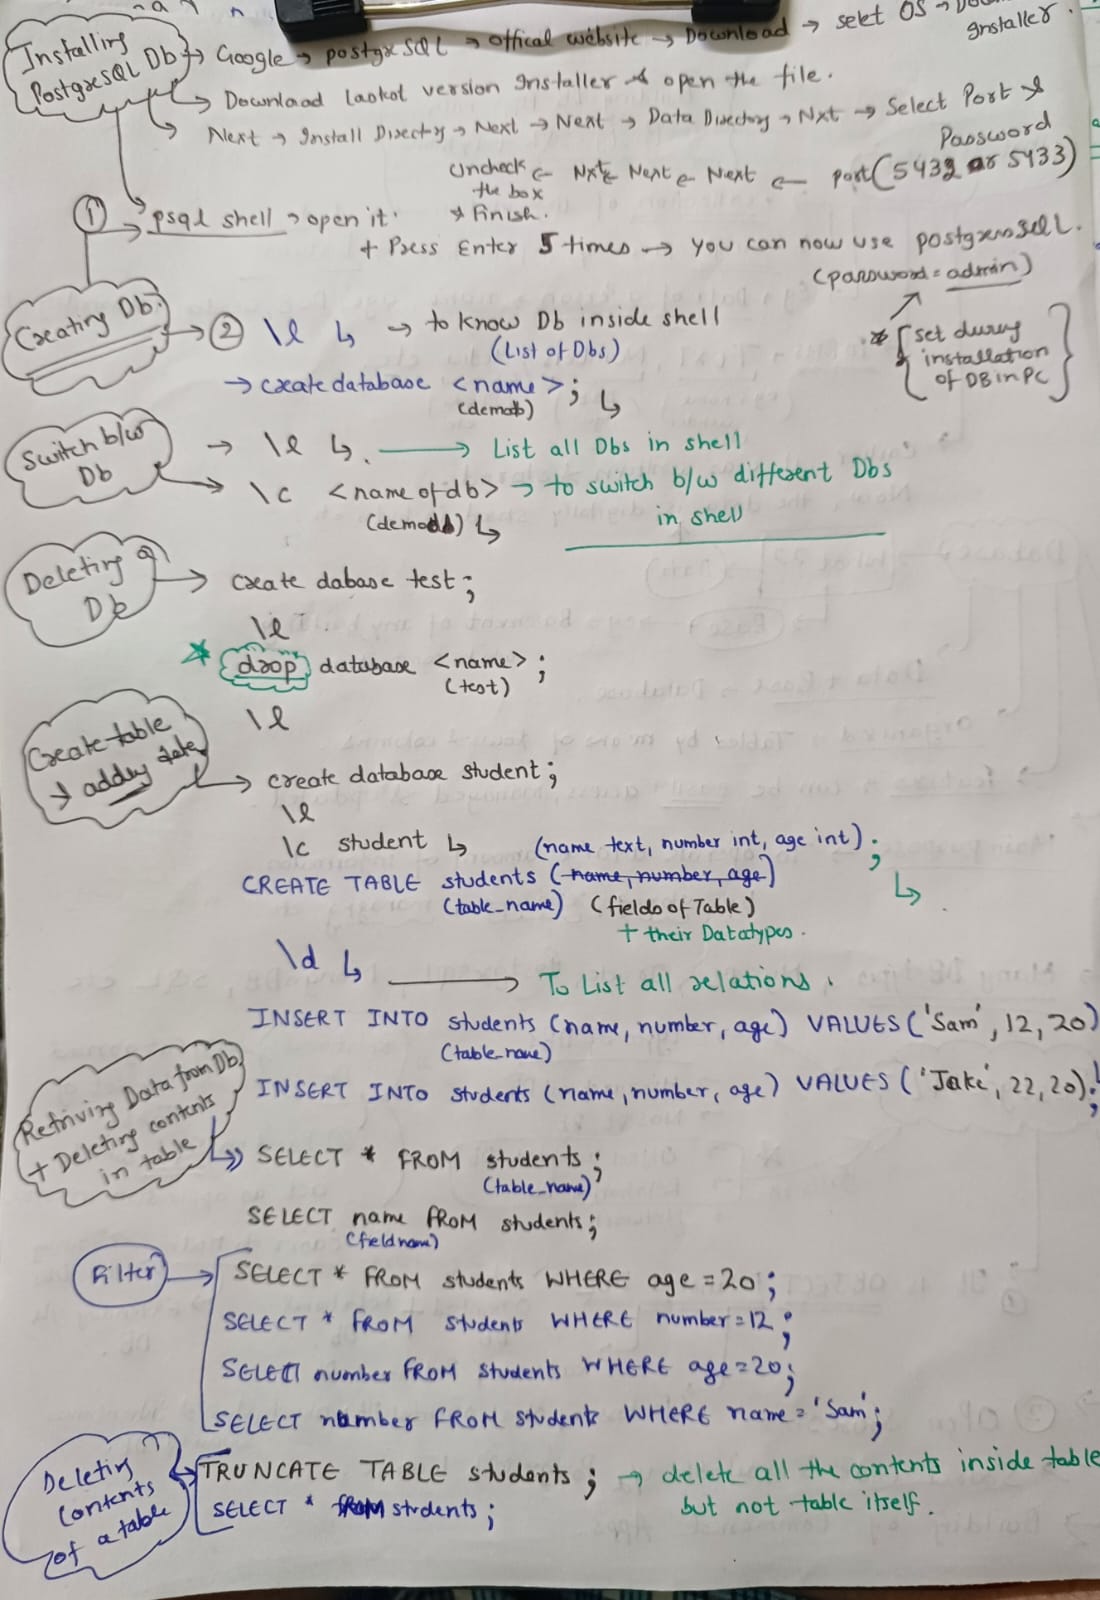 Installing PostgreSQL Db → Google → postgreSQL → offical website → Download → selet OS → Installer.
→ Download version Installer & open the file.
→ Next → Install Directory → Next → Next → Data Directory → Nxt → Select Port & Password
Uncheck the box ← Nxt ← Next ← Next ← port (5432 or 5433)
& Finish.
① → psql shell → open it.
+ Press Enter 5 times → you can now use
(password = admin)
* [set during installation of DB in PC]
Creating Db. → ② \l ↳ → to know Db inside shell
(List of Dbs)
→ create database <name>; ↳
(demodb)
Switch b/w Db → \l ↳. → List all Dbs in shell
→ \c <name of db> → to switch b/w different Dbs
(demodb) ↳ in shell
Deleting a Db → create dabase test;
\l
* drop database <name>;
(test)
\l
Create table + adding data → create database student;
\l
\c student ↳ (name text, number int, age int); ↳
CREATE TABLE students (name, number, age)
(table_name) (fields of Table)
+ their Datatypes.
\d ↳ → To List all relations.
INSERT INTO students (name, number, age) VALUES ('Sam', 12, 20)
(table_name)
INSERT INTO students (name, number, age) VALUES ('Jake', 22, 20);
Retriving Data from Db + Deleting contents in table → SELECT * FROM students;
(table_name)
SELECT name FROM students;
(field name)
Filter → SELECT * FROM students WHERE age = 20;
SELECT * FROM students WHERE number = 12;
SELECT number FROM students WHERE age = 20;
SELECT number FROM students WHERE name = 'Sam';
Deleting contents of a table → TRUNCATE TABLE students; → delete all the contents inside table
SELECT * from students; but not table itself.